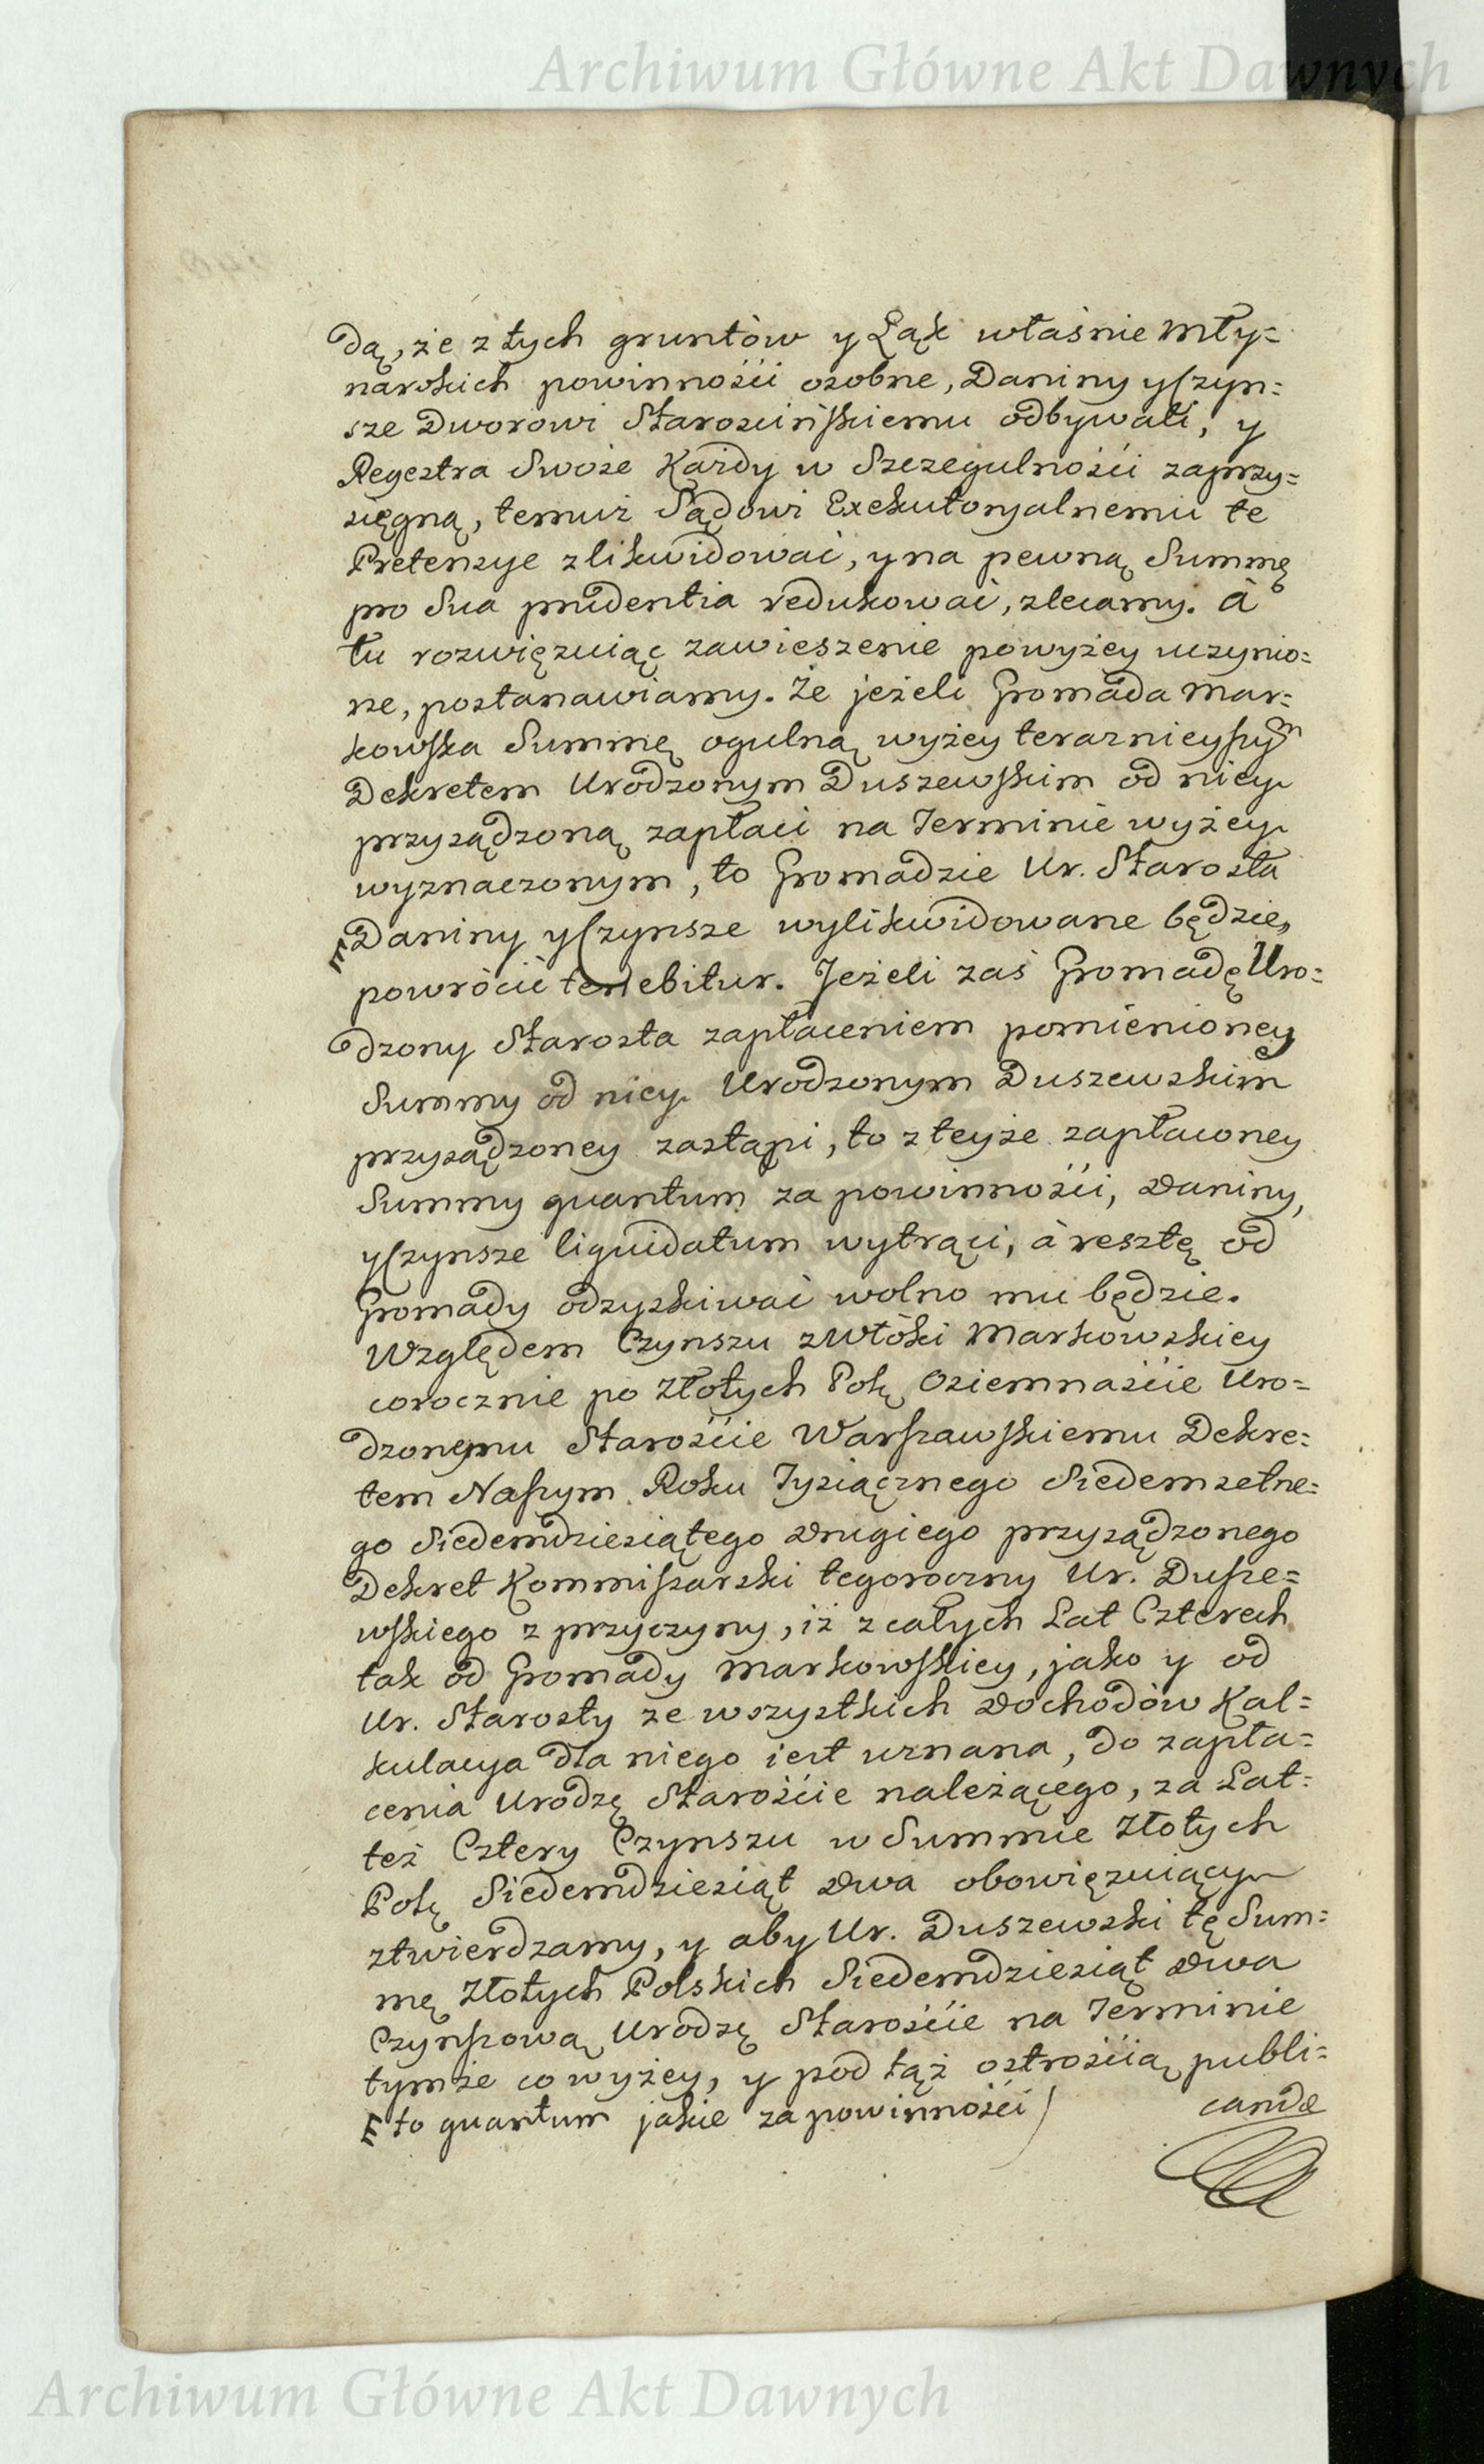 Archiwum Główne Akt Dawnych
dą, że z tych gruntów y Łąk właśnie Mły=
narskich powinności osobne, Daniny y Czyn=
sze Dworowi Starościńskiemu odbywali, y
Regestra Swoie Każdy w Szczegulności zaprzy=
sięgną, temuż Sądowi Exekutoryalnemu te
Pretensye zlikwidować, y na pewną Summę
pro Sua prudentia redukować, zlecamy. à
tu rozwięzuiąc zawieszenie powyżey uczynio=
ne, postanawiamy. Że jeżeli Gromada Mar=
kowska Summę ogulną wyżey teraznieyszym
Dekretem Urodzonym Duszewskim od niey
przysądzoną zapłaci na Terminie wyżey
wyznaczonym, to Gromadzie Ur. Starosta
Daniny y Czynsze wylikwidowane będzie,
powrócić tenebitur. Jeżeli zaś Gromadę Uro=
dzony Starosta zapłaceniem pomienioney
Summy od niey Urodzonym Duszewskim
przysądzoney zastąpi, to z teyże zapłaconey
Summy quantum za powinności, Daniny,
y Czynsze liquidatum wytrąci, à resztę od
Gromady odzyskiwać wolno mu będzie.
Względem Czynszu z Włóki Markowskiey
corocznie po Złotych Polę Osiemnaście Uro=
dzonemu Staroście Warszawskiemu Dekre=
tem Naszym Roku Tysiącznego Siedemsetne=
go Siedemdziesiątego Drugiego przysądzonego
Dekret Kommissarski tegoroczny Ur. Dusze=
wskiego z przyczyny, iż z całych Lat Czterech
tak od Gromady Markowskiey, jako y od
Ur. Starosty ze wszystkich Dochodów Kal=
kulacya dla niego iest uznana, do zapła=
cenia Urodzę Staroście należącego, za Lat
też Cztery Czynszu w Summie Złotych
Polę Siedemdziesiąt Dwa obowięzuiący
ztwierdzamy, y aby Ur. Duszewski tę Sum=
mę Złotych Polskich Siedemdziesiąt Dwa
Czynszową Urodzę Staroście na Terminie
tymże co wyżey, y pod tąż ostrością publi=
to quantum jakie za powinności
candæ
Archiwum Główne Akt Dawnych